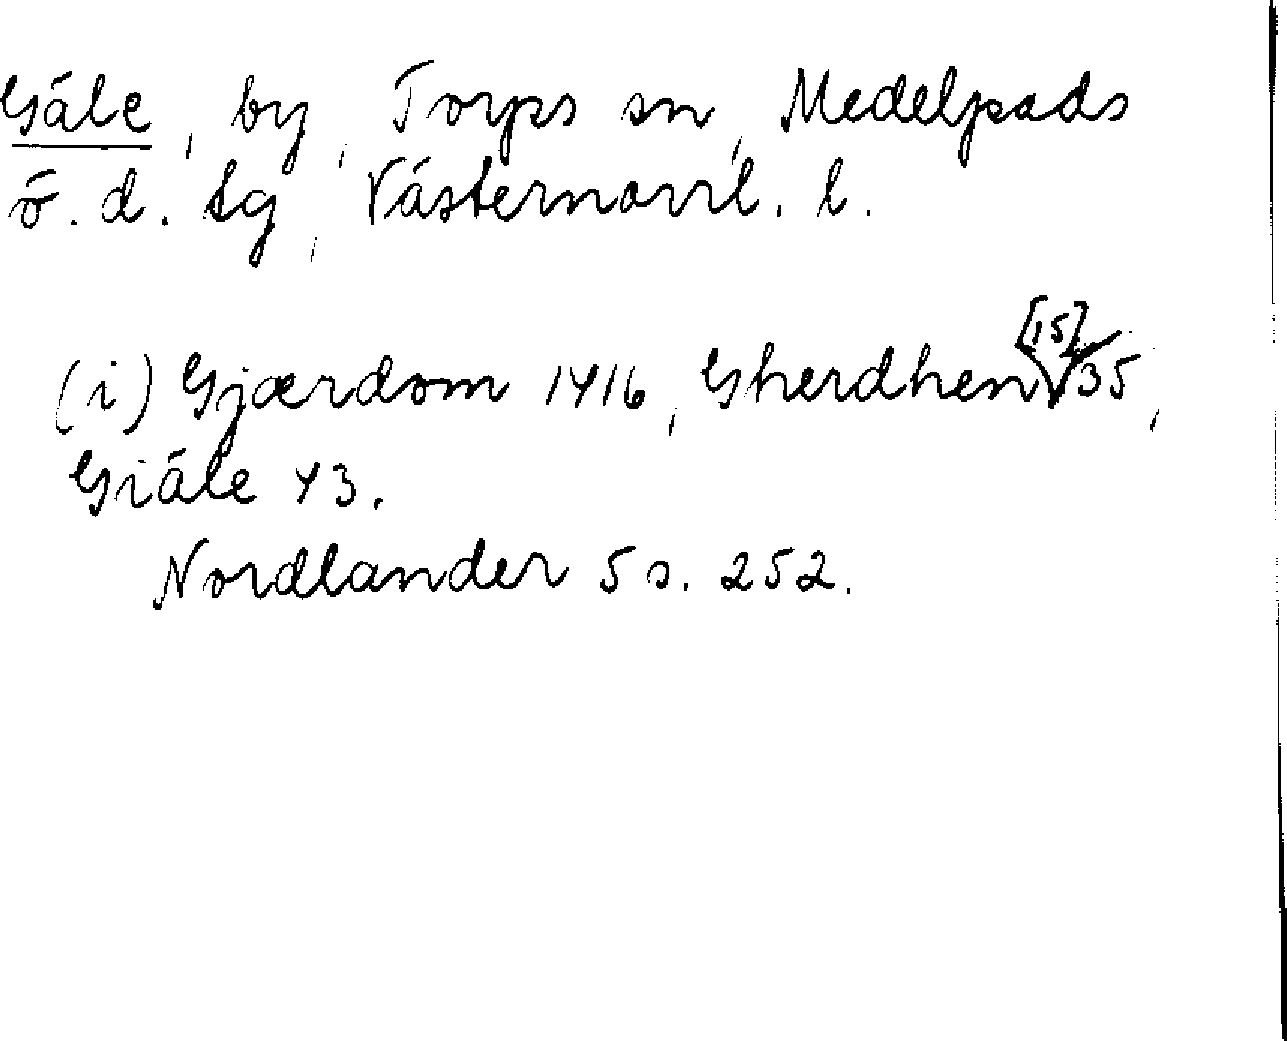 Gäle, by, Torps sn, Medelpads
ö. d. tg, Västernorrl. l.
(i) Gjærdom 1416, Gherdhen [15]35,
Giäle 43.
Nordlander 5 s. 252.